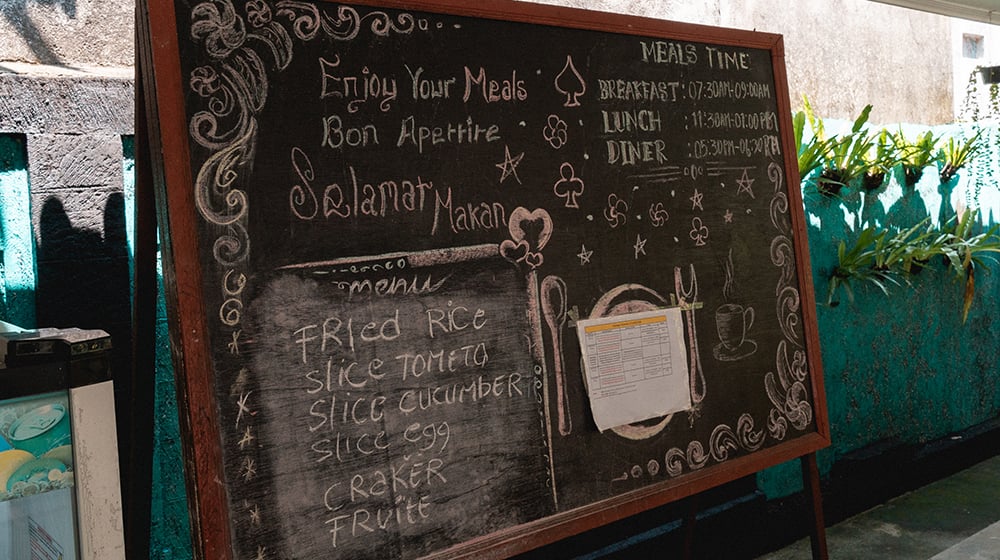 Enjoy Your Meals
Bon Apertire
Selamat Makan
MEALS TIME
BREAKFAST : 07:30AM-09:00AM
LUNCH : 11:30AM-01:00PM
DINER : 05:30PM-06:30PM
menu
FRIED RICE
SLICE TOMETO
SLICE CUCUMBER
SLICE egg
CRAKER
FRUITE